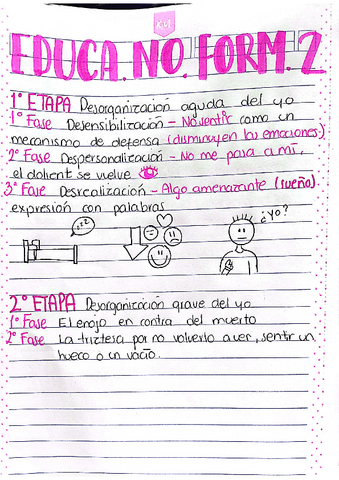 XM
EDUCA. NO. FORM. 2
1° ETAPA Desorganización aguda del yo
1° Fase Desensibilización - No sentir como un
mecanismo de defensa (disminuyen las emociones.)
2° Fase Despersonalización - No me pasa a mi,
el dolient se vuelve
3° Fase Desrealización - Algo amenazante (sueño).
expresión con palabras
zzz
¿yo?
2° ETAPA Desorganización grave del yo
1° Fase El enojo en contra del muerto
2° Fase La triztesa por no volverlo a ver, sentir un
hueco o un vacio.